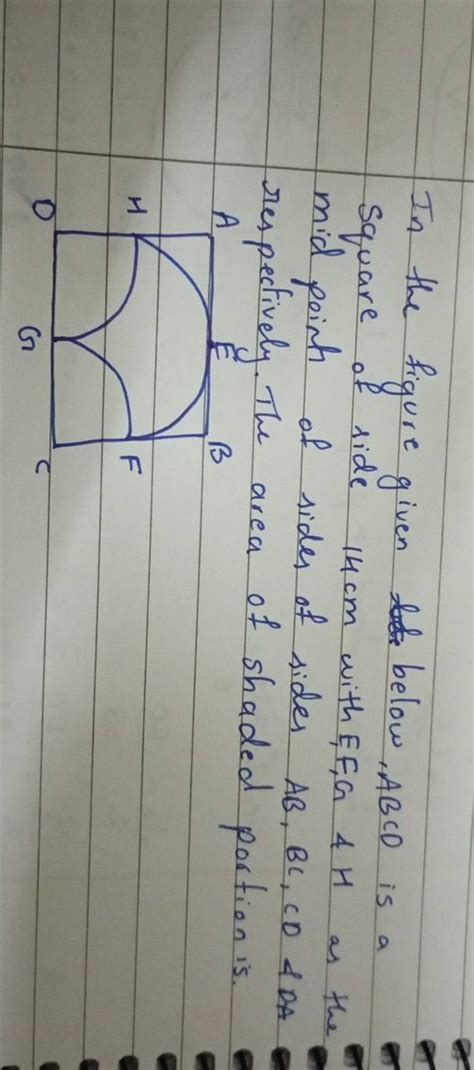 In the figure given below, ABCD is a
square of side 14cm with E, F, G & H as the
mid point of sides of sides AB, BC, CD & DA
respectively. The area of shaded portion is.
A E B
H F
D G C